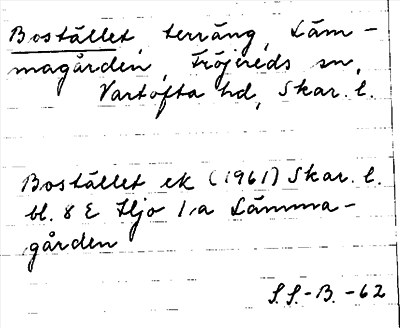 Bostället, terräng, Läm-
magården, Fröjereds sn,
Vartofta hd, Skar. l.
Bostället ek (1961) Skar. l.
bl. 8 E Hjo 1,a Lämma-
gården
S.S.-B. -62